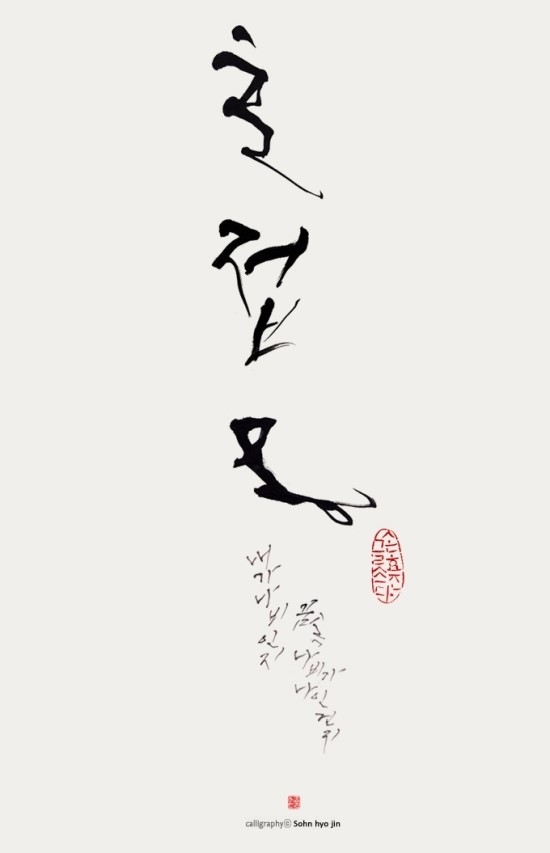 호접몽
내가 나비인지
꿈속 나비가 나인건지
calligraphyⓒ Sohn hyo jin